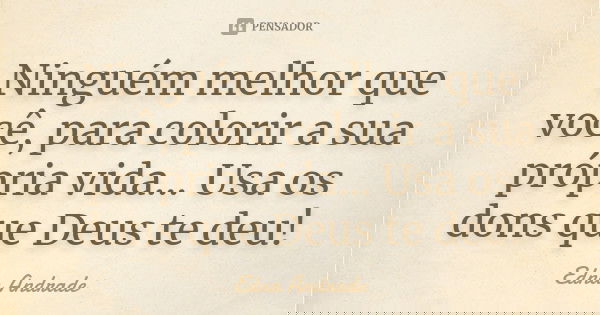 PENSADOR
Ninguém melhor que
você, para colorir a sua
própria vida... Usa os
dons que Deus te deu!
Edna Andrade